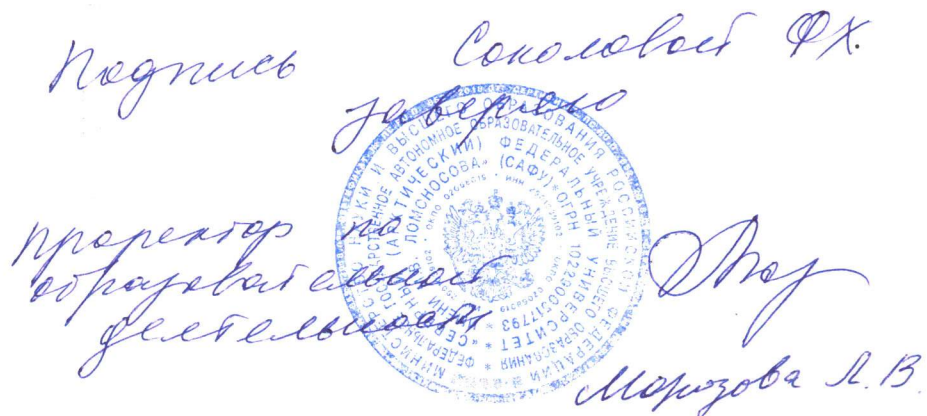 Подпись Соколовой Ф.Х.
заверяю
проректор по
образовательной
деятельности
Морозова Л.В.
МИНИСТЕРСТВО НАУКИ И ВЫСШЕГО ОБРАЗОВАНИЯ РОССИЙСКОЙ ФЕДЕРАЦИИ
ФЕДЕРАЛЬНОЕ ГОСУДАРСТВЕННОЕ АВТОНОМНОЕ ОБРАЗОВАТЕЛЬНОЕ УЧРЕЖДЕНИЕ ВЫСШЕГО ОБРАЗОВАНИЯ
«СЕВЕРНЫЙ (АРКТИЧЕСКИЙ) ФЕДЕРАЛЬНЫЙ УНИВЕРСИТЕТ
ИМЕНИ М.В. ЛОМОНОСОВА» (САФУ) * ОГРН 1022900517793 *